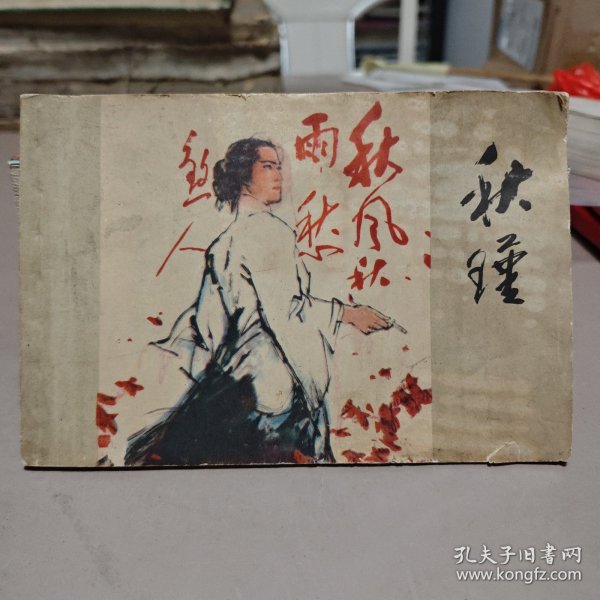 秋瑾
秋风秋
雨愁
煞人
孔夫子旧书网
www.kongfz.com